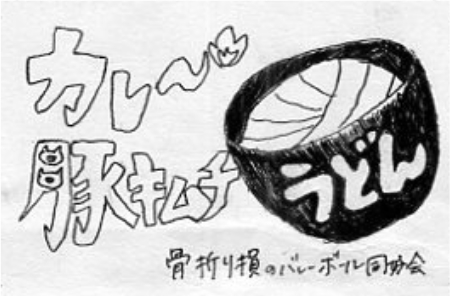 カレ〜
豚キムチ
うどん
骨折り損のバレーボール同好会